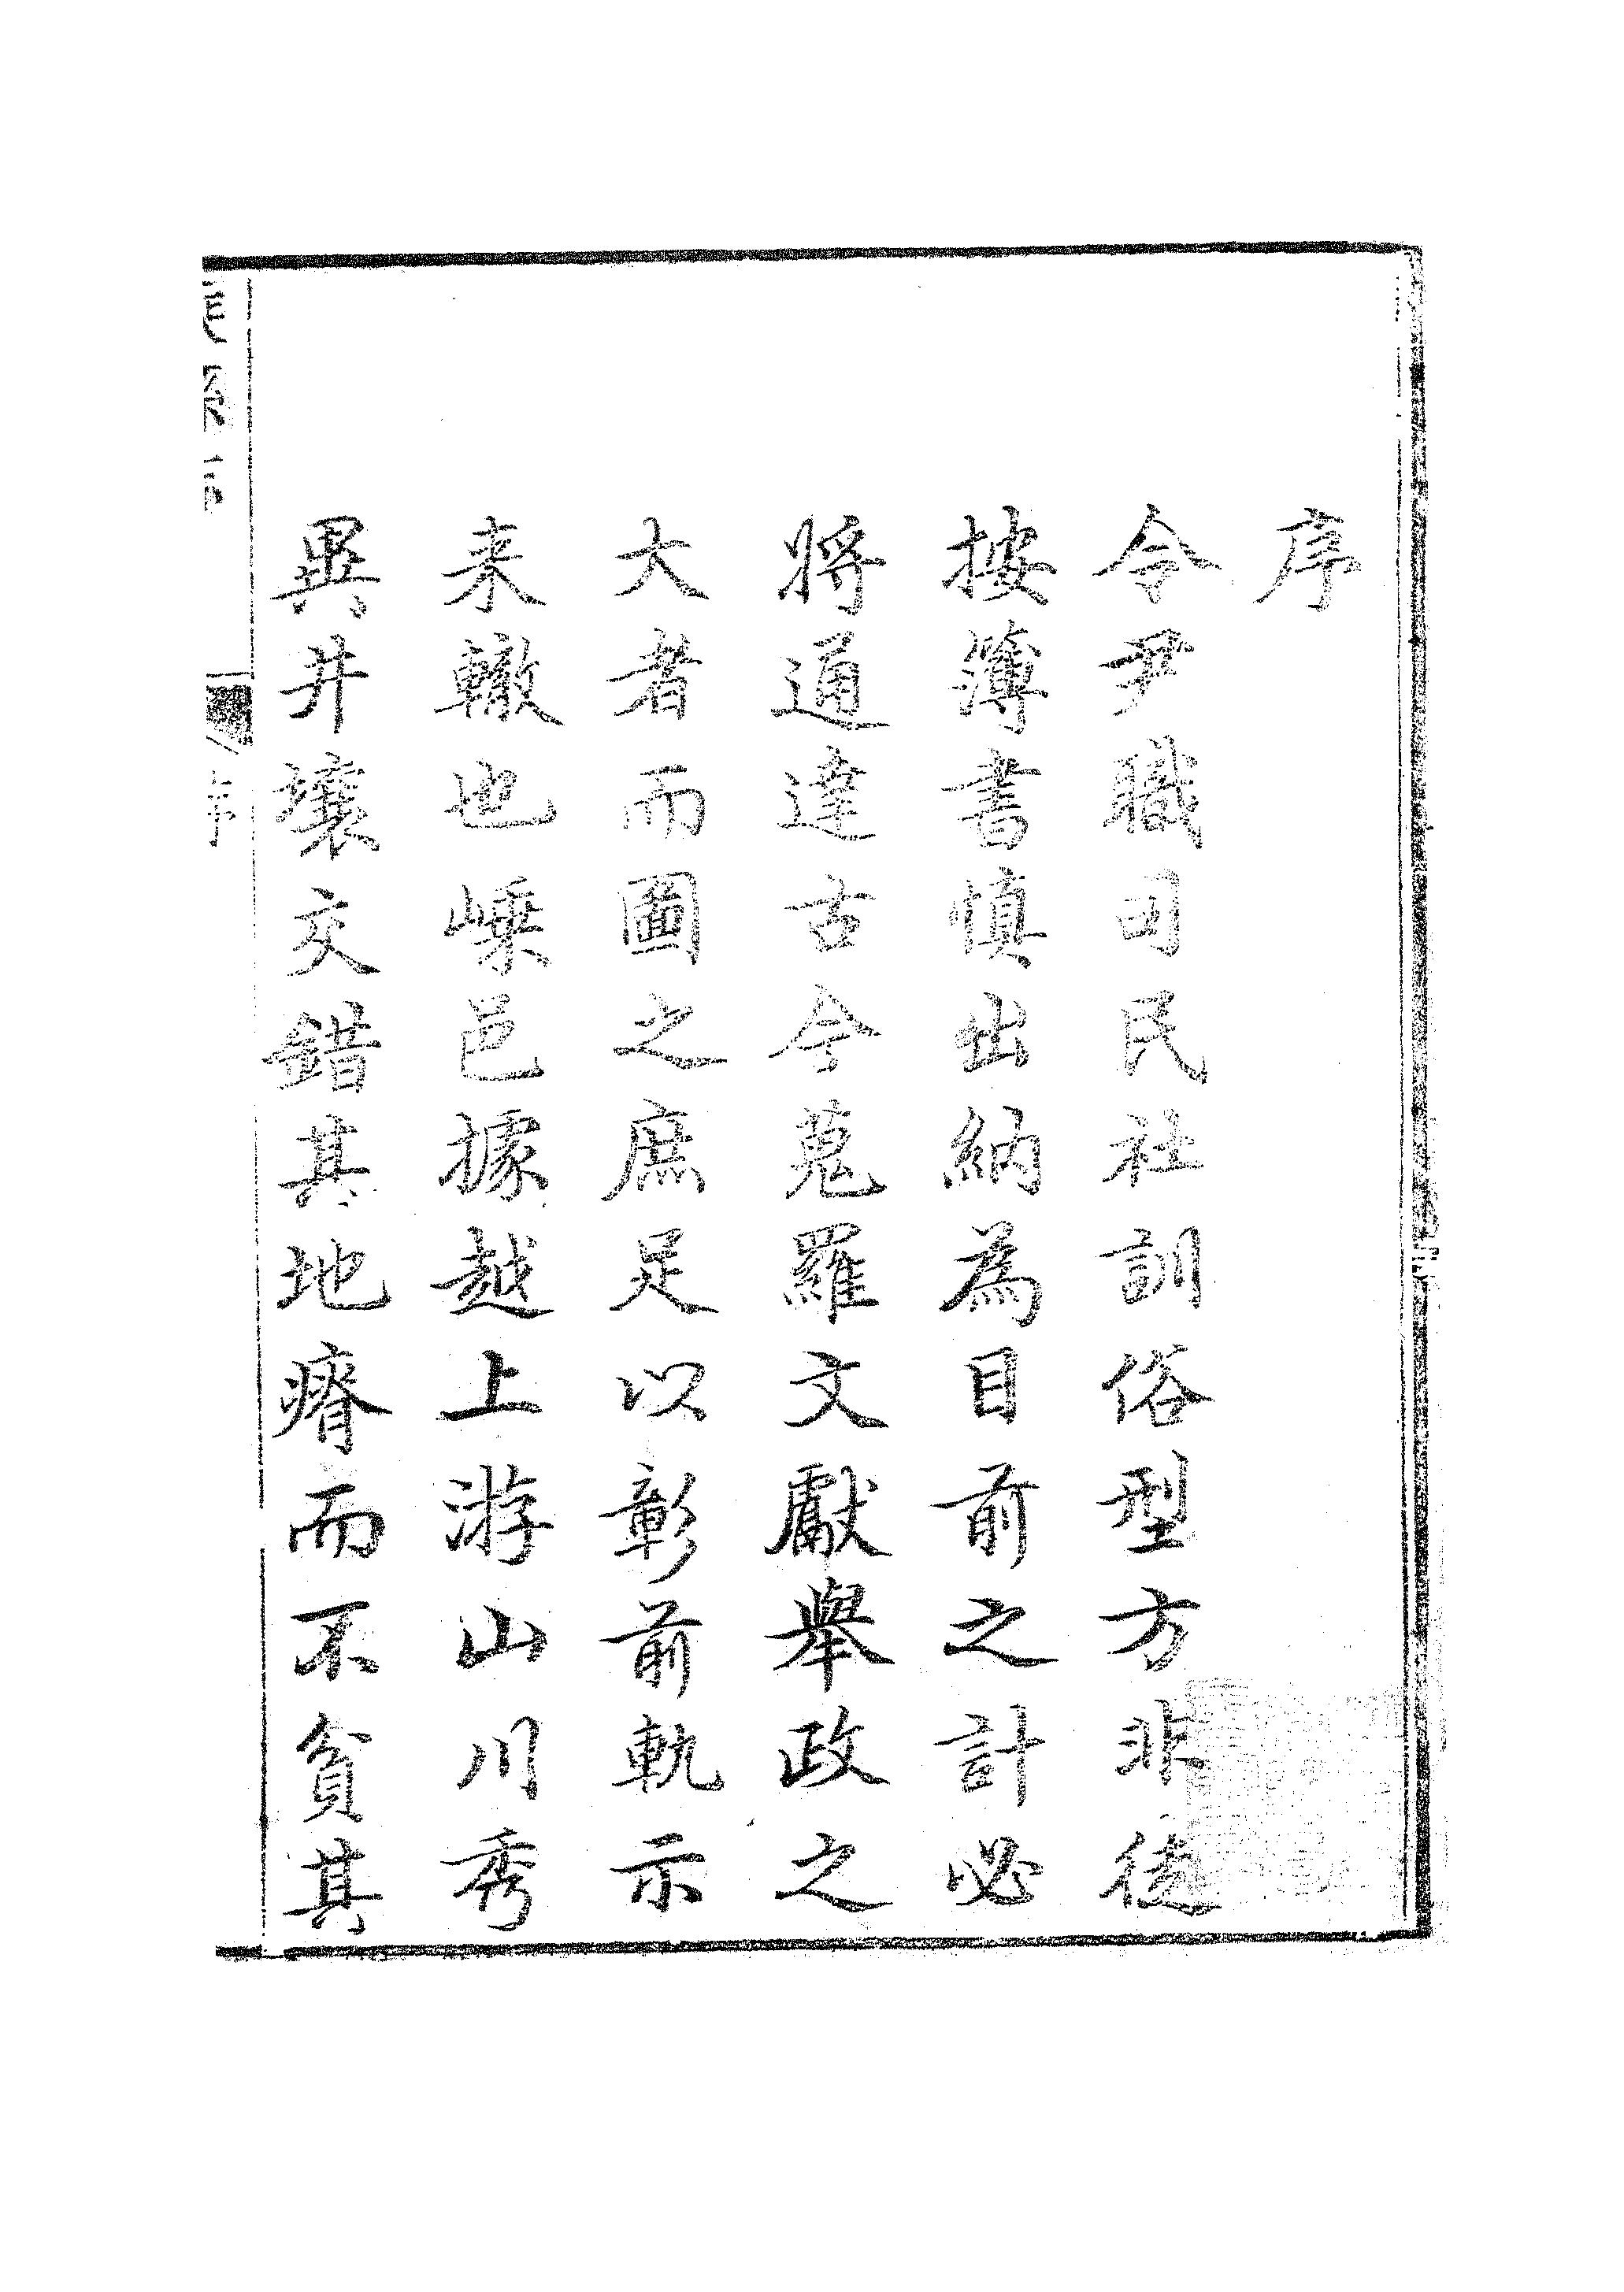 序
令尹職司民社訓俗型方非徒
按簿書慎出納為目前之計必
將通達古今蒐羅文獻舉政之
大者而圖之庶足以彰前軌示
来轍也嵊邑據越上游山川秀
異井壤交錯其地瘠而不貧其